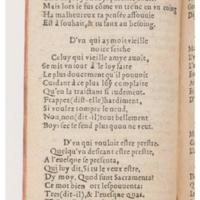 Mais lors ie fus côme vn
Ha malheureux ta pensée assouuie
Est à souhait, & tu faux au besoing.
D'vn qui aymoit vieille
noise seiche
Celuy qui vieille amye auoit,
Se mit vn iour à le luy faire
Le plus doucement qu'il pouuoit
Cuidant à ce plus luy complaire
Qu'en la traictant si rudement.
Frappez (dit-elle) hardiment,
Si vous voulez rompre le
Nou, non (dit-il) tout bellement
Boy: sec se fend plus quou ne veut.
D'vn qui vouloit estre prestre,
Quelqu'vn desirant estre prestre,
A l'euesque se presenta,
Qui luy dit, Si tu le veux estre,
Dy moy, Quod sunt Sacramenta?
Ce mot bien ort
Tres (dit-il), & l'euesque quas